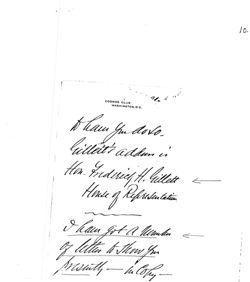 10-
COSMOS CLUB
WASHINGTON, D.C.
to have you do so.
Gillett's address is
Hon. Frederick H. Gillett
House of Representatives
I have got a number
of letters to show you
presently — in copy —